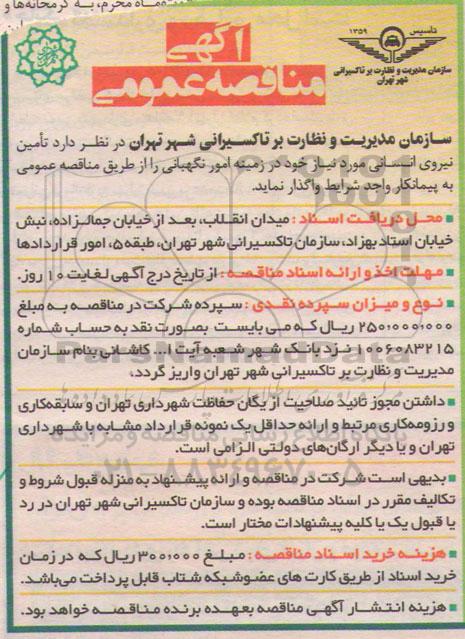 تأسیس ۱۳۵۹
سازمان مدیریت و نظارت بر تاکسیرانی
شهر تهران
آگهی
مناقصه عمومی
سازمان مدیریت و نظارت بر تاکسیرانی شهر تهران در نظر دارد تأمین
نیروی انسانی مورد نیاز خود در زمینه امور نگهبانی را از طریق مناقصه عمومی
به پیمانکار واجد شرایط واگذار نماید.
محل دریافت اسناد : میدان انقلاب، بعد از خیابان جمالزاده، نبش
خیابان استاد بهزاد، سازمان تاکسیرانی شهر تهران، طبقه ۵، امور قراردادها
مهلت اخذ و ارائه اسناد مناقصه : از تاریخ درج آگهی لغایت ۱۰ روز.
نوع و میزان سپرده نقدی : سپرده شرکت در مناقصه به مبلغ
۲۵۰،۰۰۰،۰۰۰ ریال که می بایست بصورت نقد به حساب شماره
۱۰۰۶۰۸۳۲۱۵ نزد بانک شهر شعبه آیت ا... کاشانی بنام سازمان
مدیریت و نظارت بر تاکسیرانی شهر تهران واریز گردد،
داشتن مجوز تائید صلاحیت از یگان حفاظت شهرداری تهران و سابقه کاری
و رزومه کاری مرتبط و ارائه حداقل یک نمونه قرارداد مشابه با شهرداری
تهران و یا دیگر ارگان های دولتی الزامی است.
بدیهی است شرکت در مناقصه و ارائه پیشنهاد به منزله قبول شروط و
تکالیف مقرر در اسناد مناقصه بوده و سازمان تاکسیرانی شهر تهران در رد
یا قبول یک یا کلیه پیشنهادات مختار است.
هزینه خرید اسناد مناقصه : مبلغ ۳۰۰،۰۰۰ ریال که در زمان
خرید اسناد از طریق کارت های عضو شبکه شتاب قابل پرداخت می باشد.
هزینه انتشار آگهی مناقصه بعهده برنده مناقصه خواهد بود.
ParsNamadData
۰۲۱-۸۸۳۴۹۶۷۰-۵